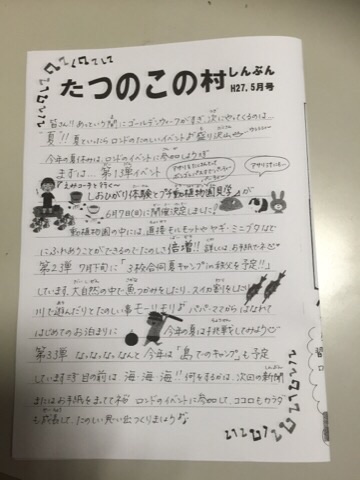 たつのこの村しんぶん
H27.5月号
皆さん!!あっという間にゴールデンウィークがすぎ、次にやってくるのは…
夏!! 夏といったらロンドのたのしいイベントが盛り沢山
今年の夏休みは、ロンドのイベントに参加しよう
まずは… 第1弾イベント
しおひがり体験とプチ動植物園見学が
6月7日(日)に開催決定しました!
動植物園の中には、直接モルモットやヤギ・ミニブタなど
にふれあうことができるのでたのしさ倍増!! 詳しくはお手紙を
第2弾 7月下旬に「3校合同夏キャンプin秩父を予定!!」
しています。大自然の中で魚つかみをしたり、スイカ割をしたり
川で遊んだりとたのしい事モーリモリ パパ・ママからはなれて
はじめてのお泊まりに 今年の夏は挑戦してみよう
第3弾 な・な・な・なんと今年は「島でのキャンプ」も予定
しています 目の前は、海・海・海!! 何をするかは、次回の新聞
またはお手紙をまっててネ ロンドのイベントに参加して、ココロもカラダ
も成長して、たのしい思い出つくりましょう